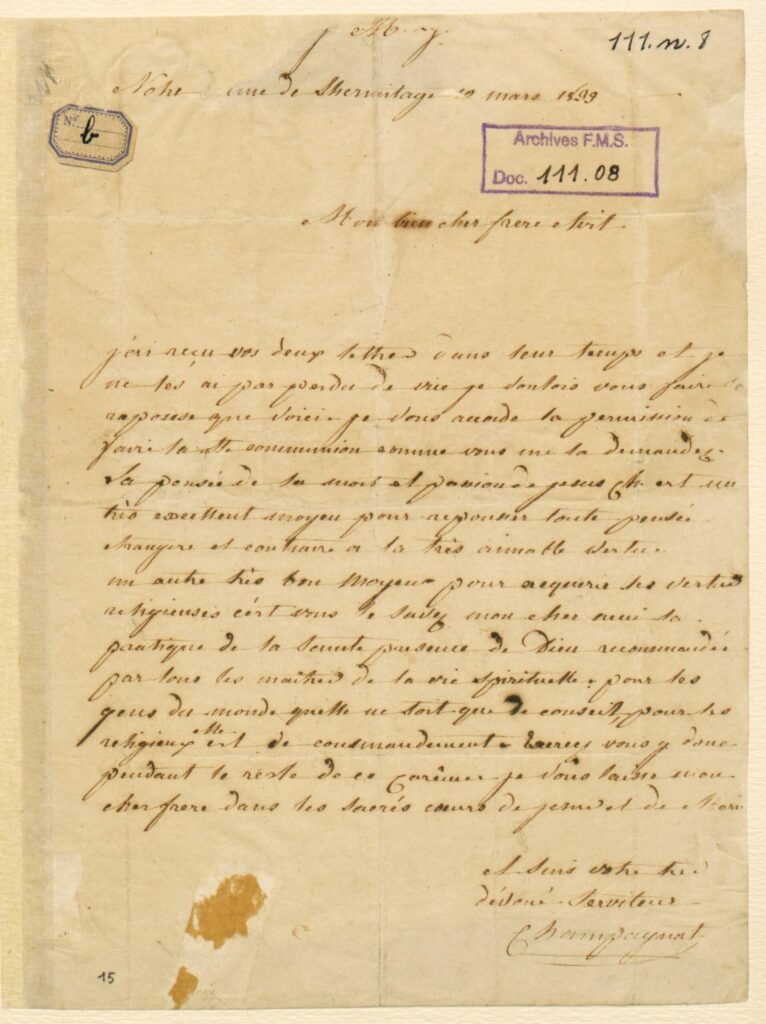 J M J
111. n. 8
Notre Dame de Lhermitage 19 mars 1839
N° b
Archives F.M.S.
Doc. 111.08
Mon bien cher frere avit
j'ai reçu vos deux lettres dans leur temps et je
ne les ai pas perdu de vue je voulois vous faire
reponse que voici je vous acorde la permission de
faire la Ste communion comme vous me la demandez.
La pensée de la mort et passion de jesus Ch. est un
très excellent moyen pour repousser toute pensée
etrangere et contraire a la très aimable vertu.
un autre très bon moyen pour aequerir les vertus
religieuses c'est vous le savez mon cher ami la
pratique de la sainte presence de Dieu recommandée
par tous les maitres de la vie spirituelle. pour les
gens du monde quelle ne soit que de conseil, pour les
religieux elle est de commandement. Exercez vous y donc
pendant le reste de ce carême. je vous laisse mon
cher frere dans les sacrés cœurs de jesus et de Marie
et suis votre tres
dévoué serviteur
Champagnat
15